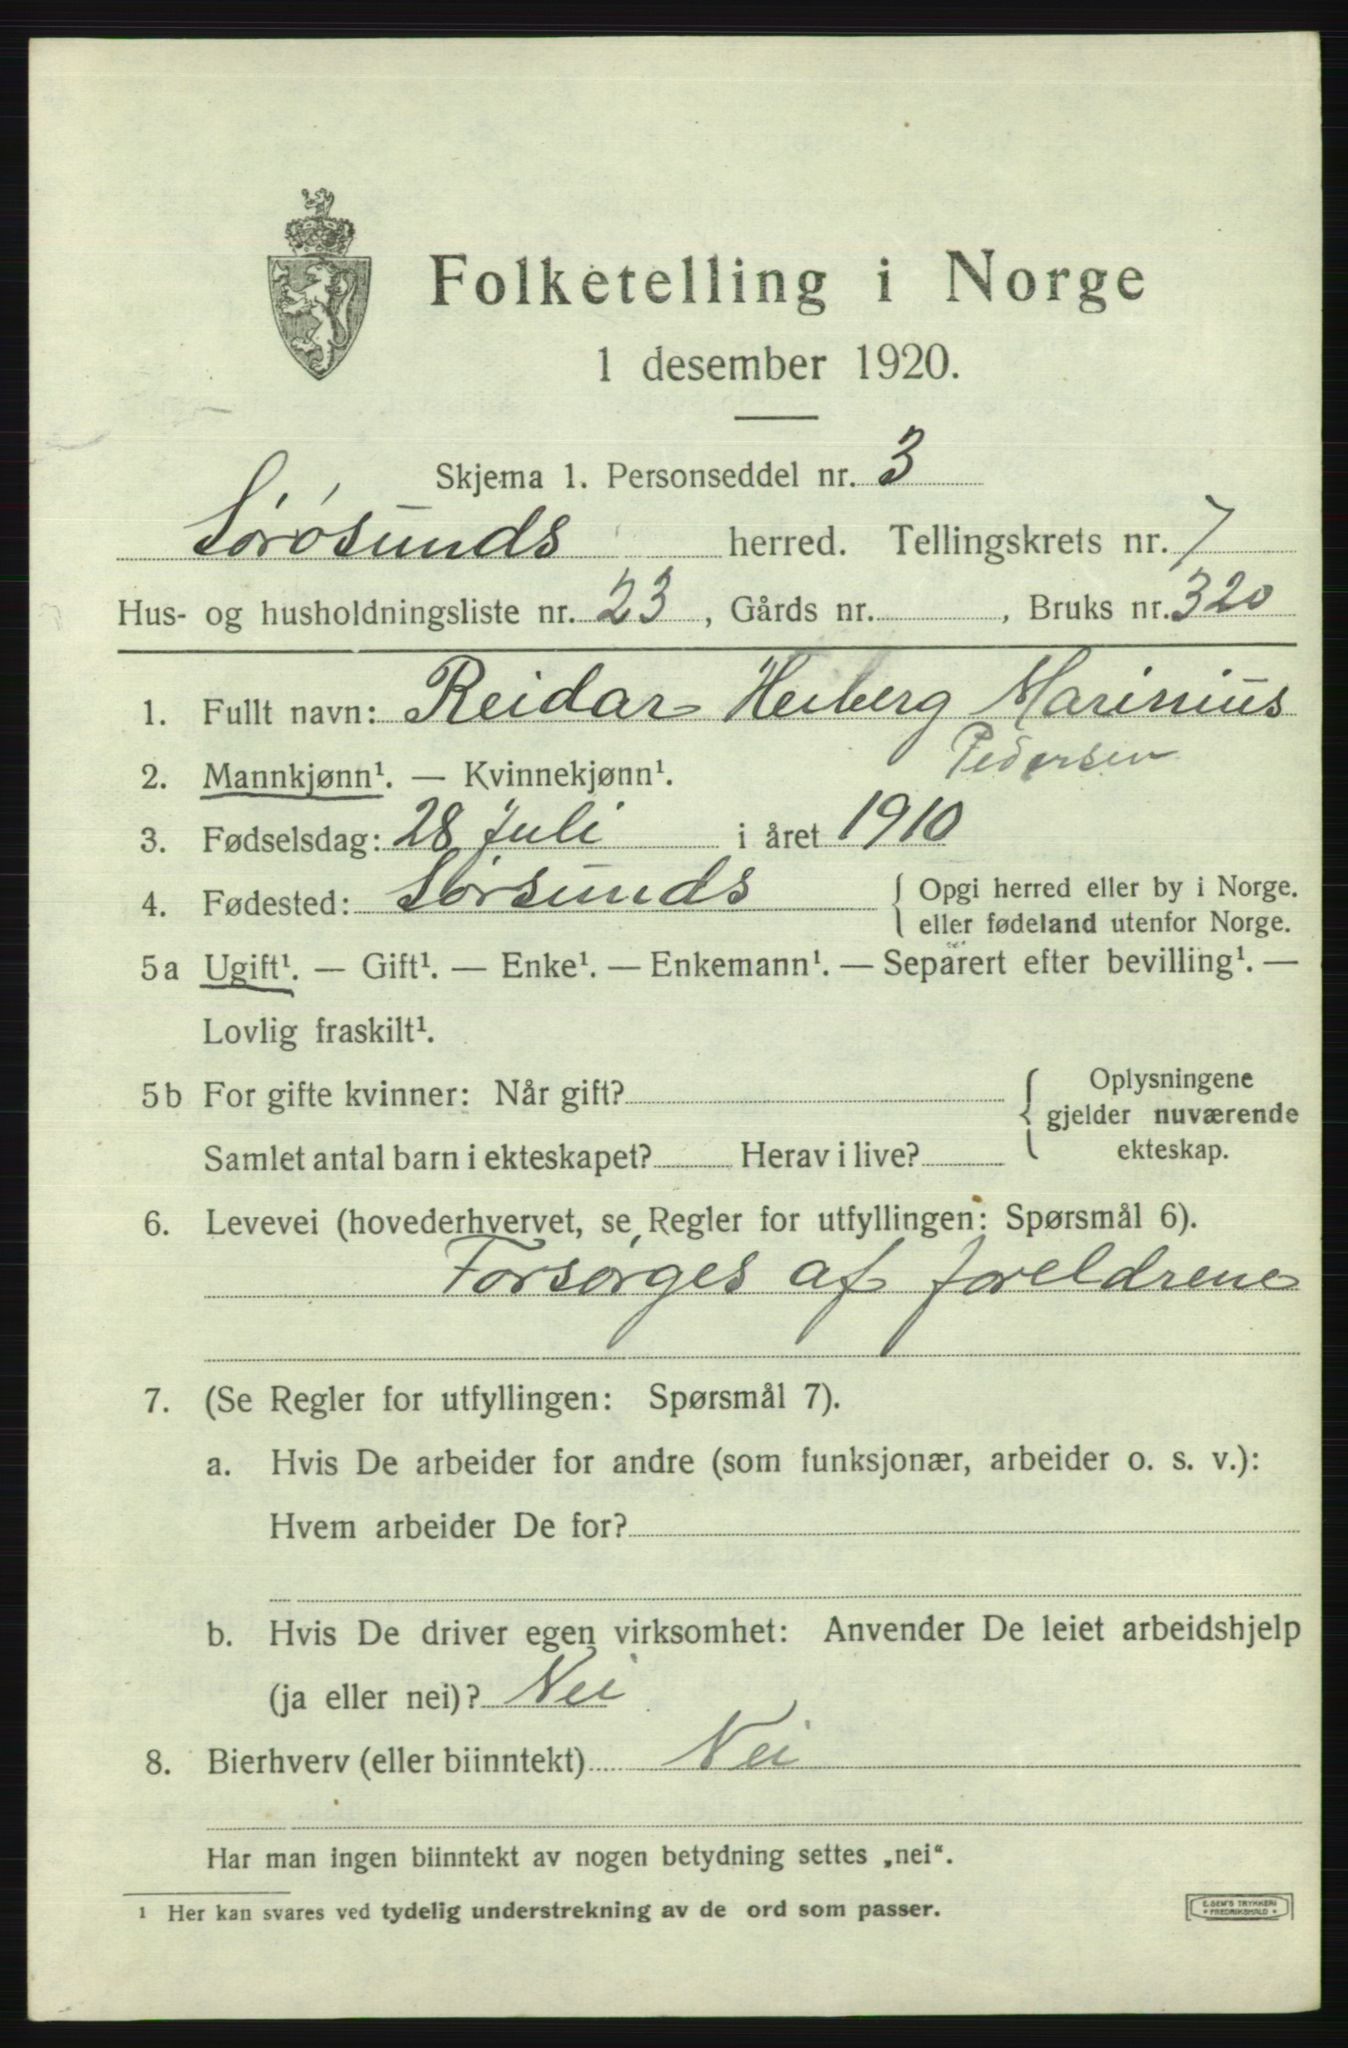 Folketelling i Norge
1 desember 1920.
Skjema 1. Personseddel nr. 3
Sørøsunds herred. Tellingskrets nr. 7
Hus- og husholdningsliste nr. 23, Gårds nr. , Bruks nr. 320
1. Fullt navn: Reidar Heiberg Marinius
Pedersen
2. Mannkjønn¹. — Kvinnekjønn¹.
3. Fødselsdag: 28 Juli i året 1910
4. Fødested: Sørsunds { Opgi herred eller by i Norge.
eller fødeland utenfor Norge.
5a Ugift¹. — Gift¹. — Enke¹. — Enkemann¹. — Separert efter bevilling¹. —
Lovlig fraskilt¹.
5b For gifte kvinner: Når gift? { Oplysningene
gjelder nuværende
Samlet antal barn i ekteskapet? Herav i live? ekteskap.
6. Levevei (hovederhvervet, se Regler for utfyllingen: Spørsmål 6).
Forsørges af foreldrene
7. (Se Regler for utfyllingen: Spørsmål 7).
a. Hvis De arbeider for andre (som funksjonær, arbeider o. s. v.):
Hvem arbeider De for?
b. Hvis De driver egen virksomhet: Anvender De leiet arbeidshjelp
(ja eller nei)? Nei
8. Bierhverv (eller biinntekt) Nei
Har man ingen biinntekt av nogen betydning settes „nei“.
¹ Her kan svares ved tydelig understrekning av de ord som passer.
E. SEM'S TRYKKERI
• FREDRIKSHALD •